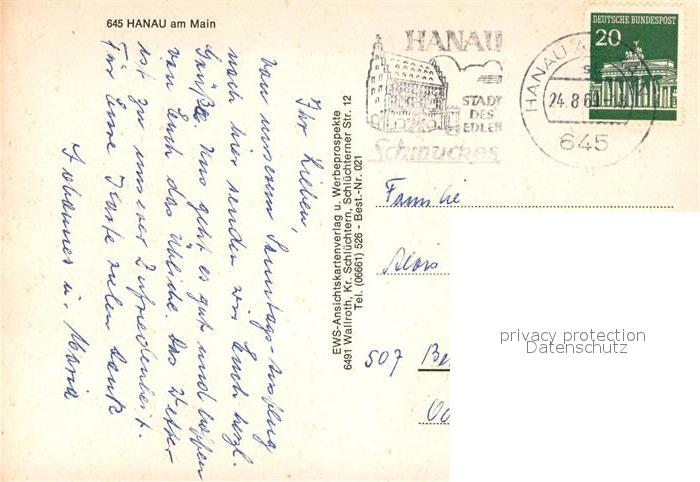 645 HANAU am Main
Ihr Lieben,
von unserem Sonntags-Ausflug
nach hier senden wir Euch herzl.
Grüße. Uns geht es gut und hoffen
von Euch das Übliche. Das Wetter
ist zu unserer Zufriedenheit.
Für Eure Karte vielen Dank
Johannes u. Maria
EWS-Ansichtskartenverlag u. Werbeprospekte
6491 Wallroth, Kr. Schlüchtern, Schlüchterner Str. 12
Tel. (06661) 526 - Best.-Nr. 021
HANAU
STADT
DES
EDLEN
Schmuckes
HANAU
24.8.6
645
DEUTSCHE BUNDESPOST
20
Familie
Alois
507 Be
privacy protection
Datenschutz